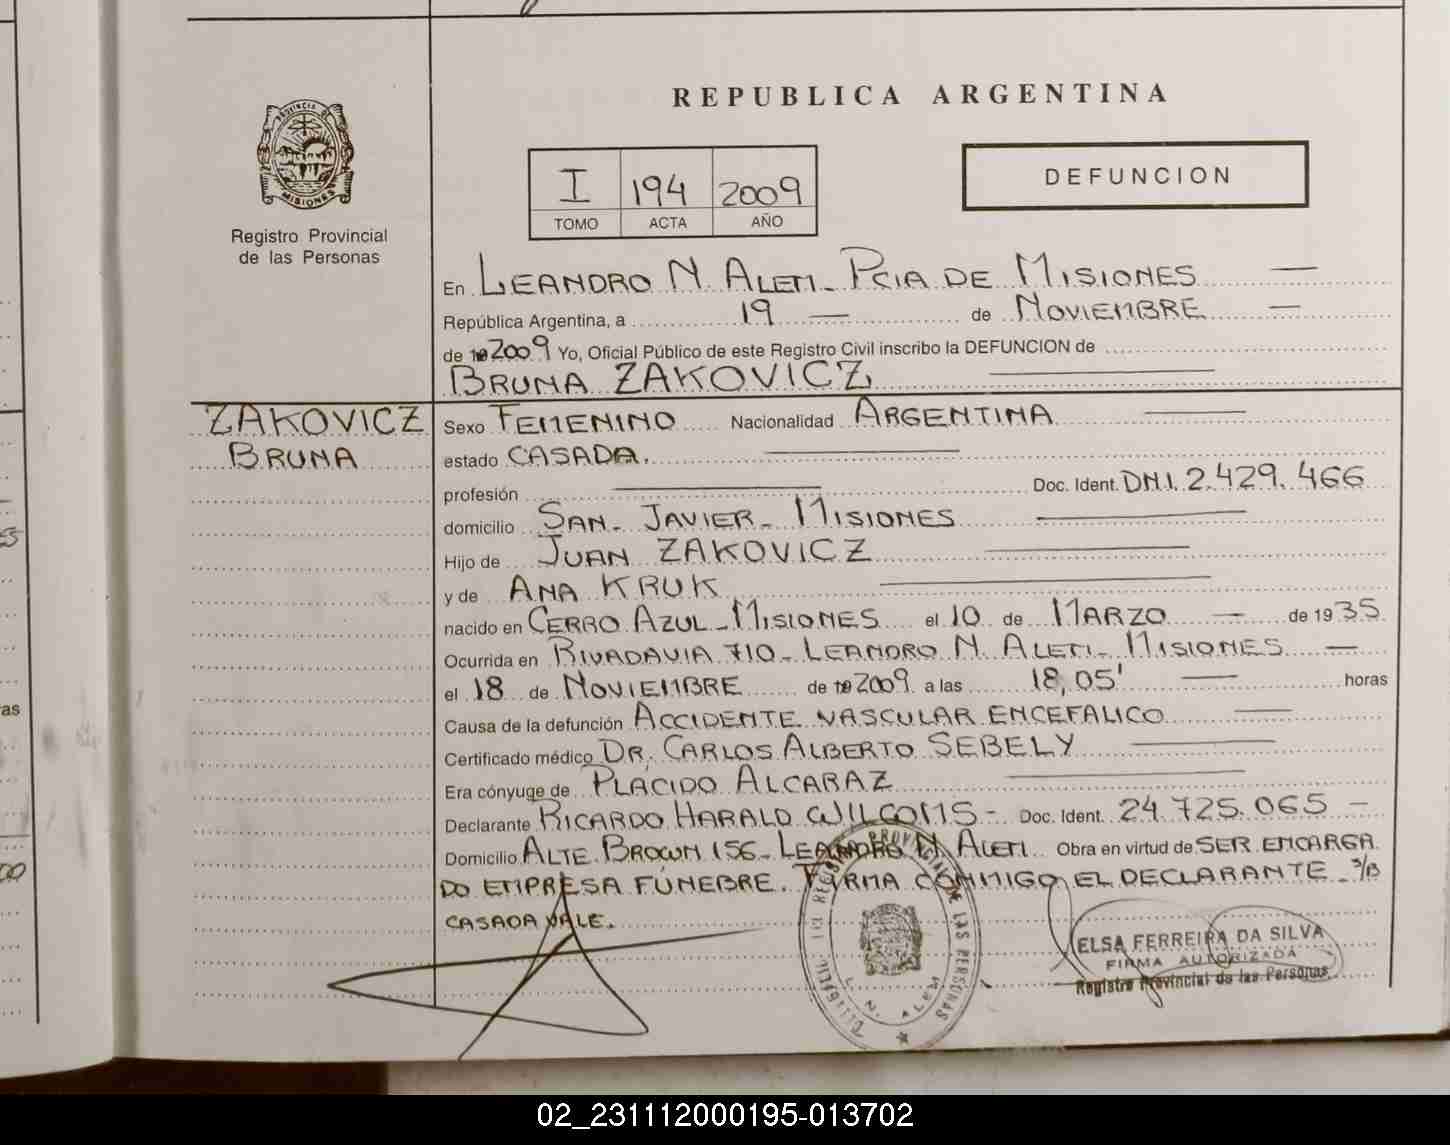 REPUBLICA ARGENTINA
PROVINCIA DE MISIONES
Registro Provincial
de las Personas
I 194 2009
TOMO ACTA AÑO
DEFUNCION
En LEANDRO N. ALEM_ PCIA DE MISIONES
República Argentina, a 19 de NOVIEMBRE
de 2009 Yo, Oficial Público de este Registro Civil inscribo la DEFUNCION de
BRUNA ZAKOVICZ
ZAKOVICZ
BRUNA
Sexo FEMENINO Nacionalidad ARGENTINA
estado CASADA.
profesión Doc. Ident. DNI. 2.429.466
domicilio SAN_ JAVIER_ MISIONES
Hijo de JUAN ZAKOVICZ
y de ANA KRUK
nacido en CERRO AZUL_ MISIONES el 10 de MARZO de 1935
Ocurrida en RIVADAVIA 710_ LEANDRO N. ALEM_ MISIONES
el 18 de NOVIEMBRE de 2009 a las 18,05' horas
Causa de la defunción ACCIDENTE VASCULAR ENCEFALICO
Certificado médico DR. CARLOS ALBERTO SEBELY
Era cónyuge de PLACIDO ALCARAZ
Declarante RICARDO HARALD WILCOMS - Doc. Ident. 24.725.065 -
Domicilio ALTE. BROWN 156_ LEANDRO N. ALEM Obra en virtud de SER ENCARGA
DO EMPRESA FÚNEBRE. FIRMA CONMIGO EL DECLARANTE_ S/B
CASADA VALE.
REGISTRO PROVINCIAL DE LAS PERSONAS
L. N. ALEM
ELSA FERREIRA DA SILVA
FIRMA AUTORIZADA
Registro Provincial de las Personas
55
as
00
02_231112000195-013702